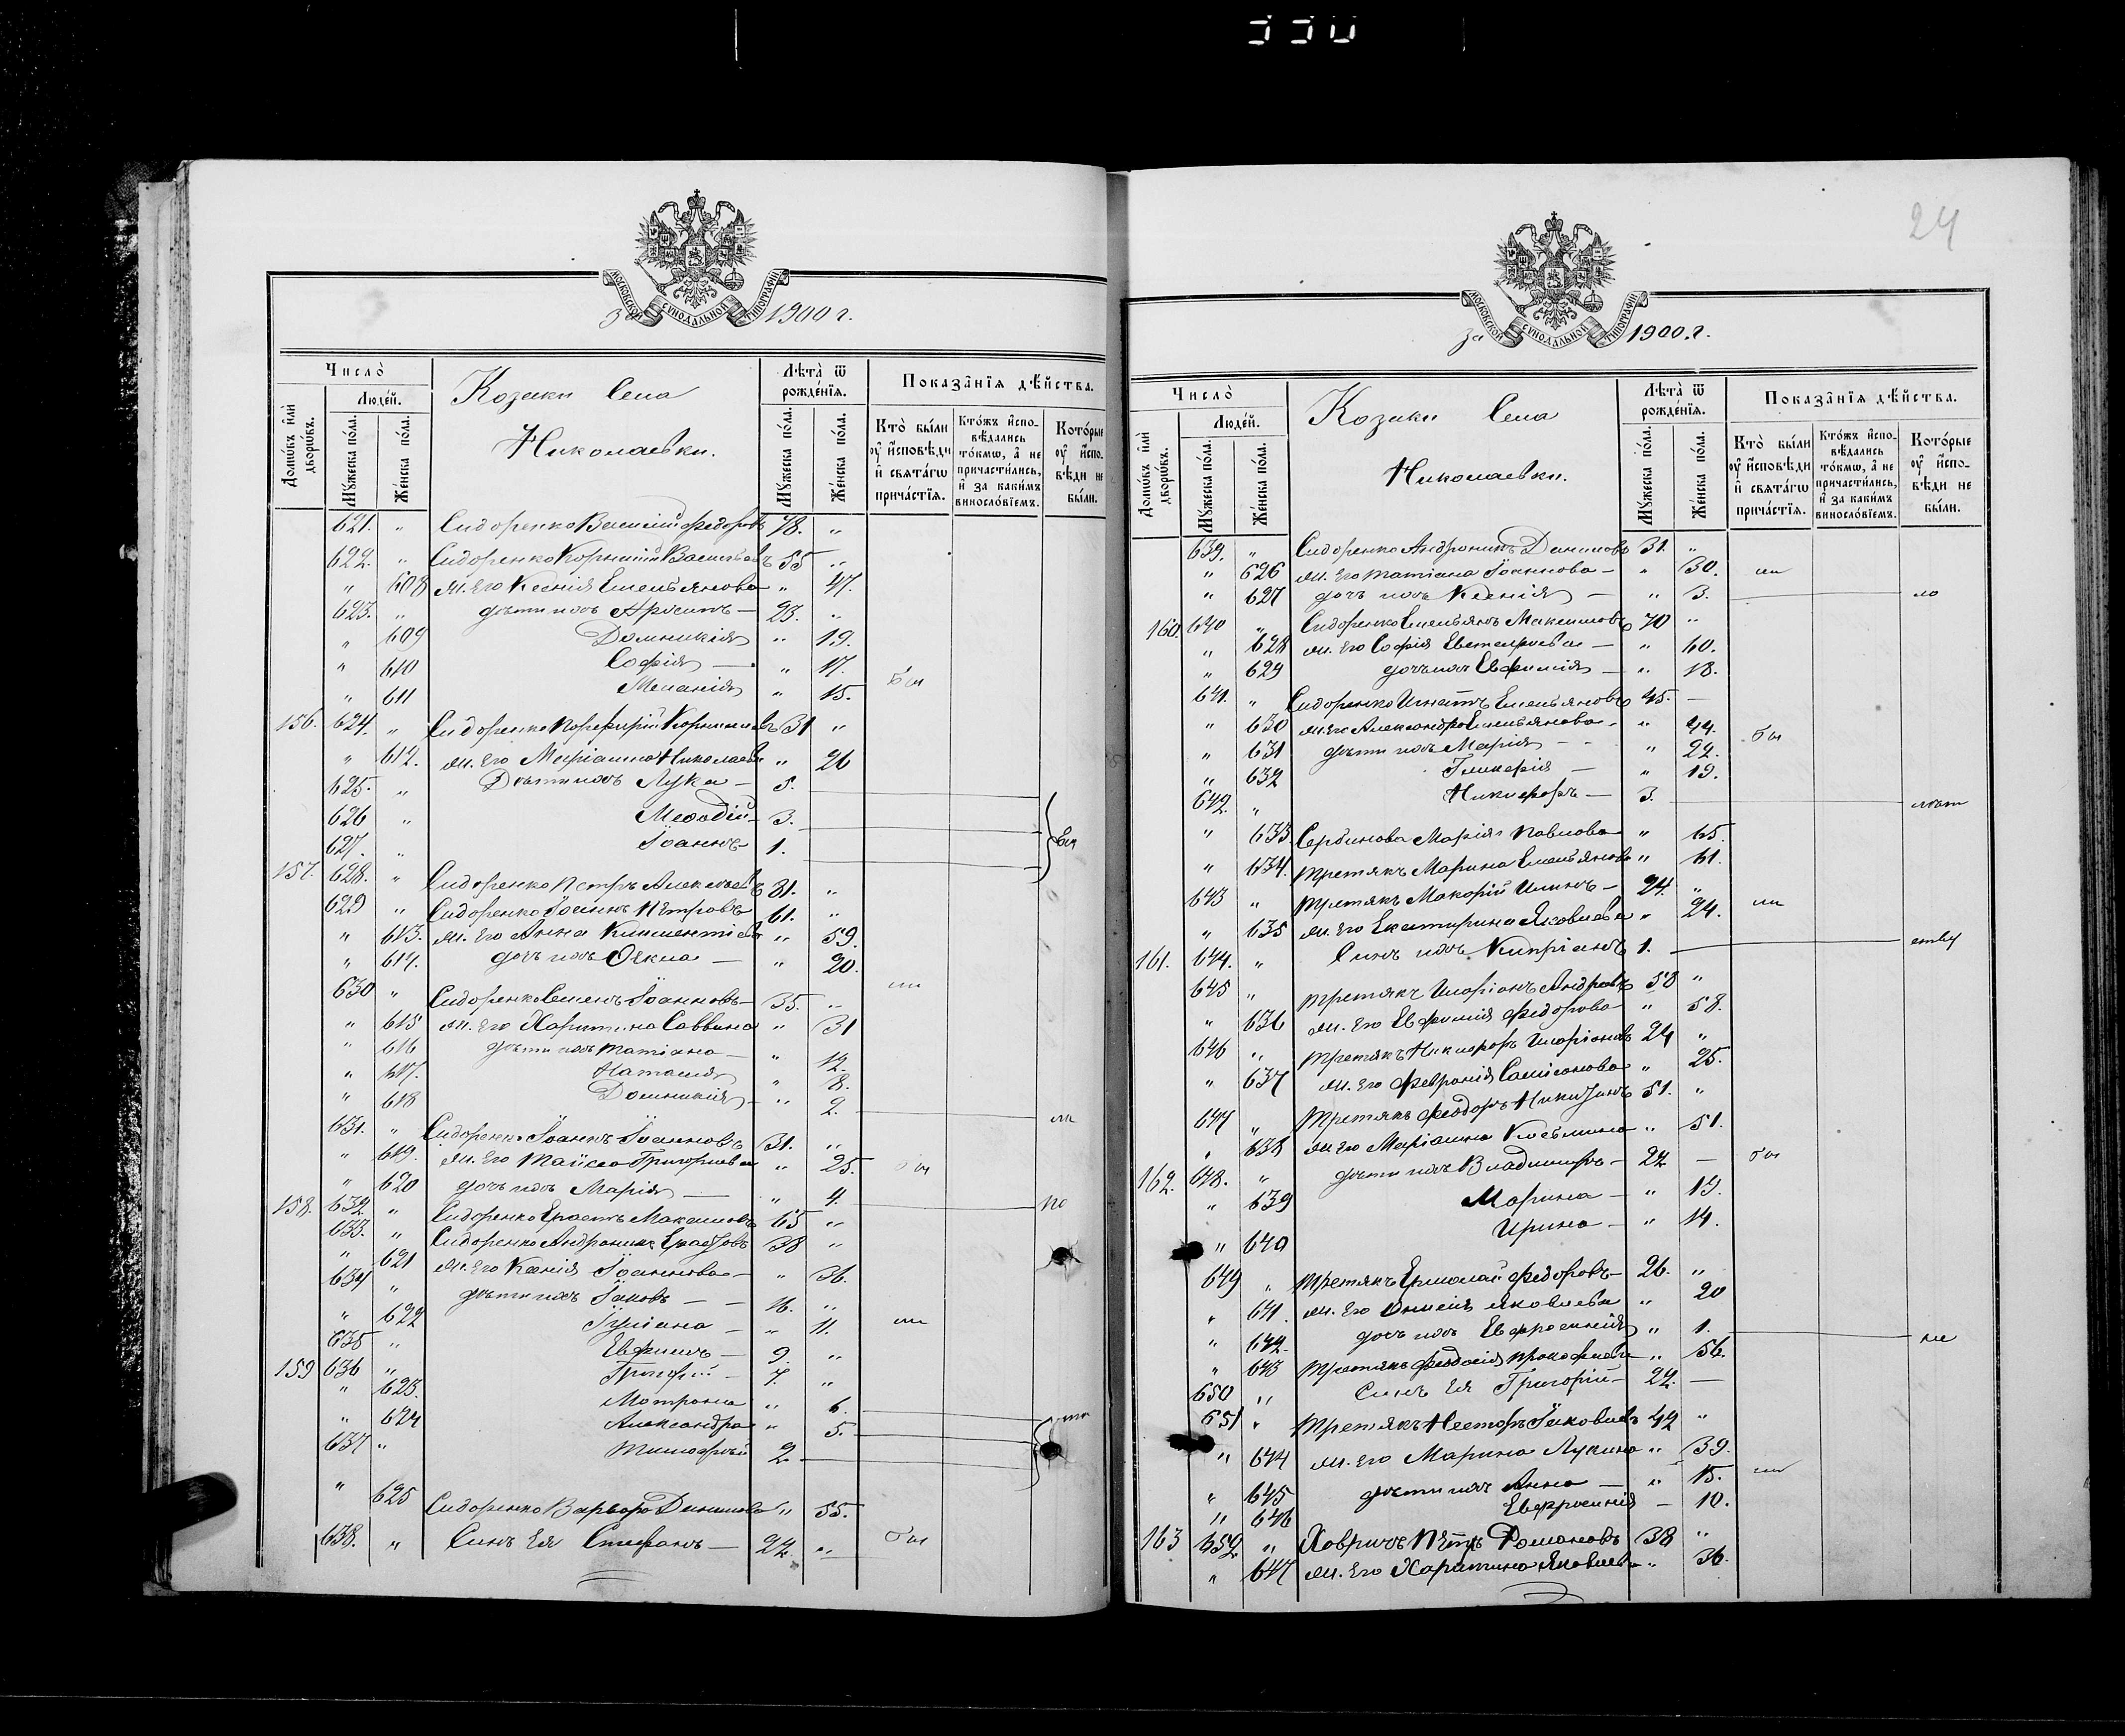 330
МОСКОВСКОЙ СѴНОДАЛЬНОЙ ТИПОГРАФІИ
за 1900 г.
Число̀
Люде́й.
Домѡ́въ и҆лѝ дворѡ́въ.
Мꙋ́жеска по́ла.
Же́нска по́ла.
Козаки Села
Николаевки.
Лѣ́та ѿ рожде́нїѧ.
Мꙋ́жеска по́ла.
Же́нска по́ла.
Показа̑нїѧ дѣ́йства.
Кто̀ бы́ли оу҆ и҆сповѣ́ди и҆ свѧта́гѡ прича́стїѧ.
Кто́жъ и҆спо-вѣ́дались то́кмѡ, а҆ не причасти́лись, и҆ за каки́мъ винosло́вїемъ.
Кото́рые оу҆ и҆спо-вѣ́ди не бы́ли.
621. " Сидоренко Василій Федоровъ 78. "
622. " Сидоренко Корнилій Васильевъ 55 "
" 608 ж. его Ксенія Емельянова " 47.
623. " дѣти ихъ Арсенъ — 23. "
" 609 Домникія " 19.
" 610 Софія — " 17.
" 611 Меланія " 15. бы
156. 624. " Сидоренко Порфирій Корниліевъ 31 "
" 612. ж. его Маріамна Николаева " 26
625. " Дѣти ихъ Лука — 5.
626 " Меѳодій 3.
627. " Іоаннъ 1. бы
157. 628. " Сидоренко Петръ Алексѣевъ 81. "
629 " Сидоренко Іоаннъ Петровъ 61. "
" 613. ж. его Анна Климентіева " 59.
" 614. дочь ихъ Ѳекла — " 20.
630 " Сидоренко Семенъ Іоанновъ 35. " ли
" 615 ж. его Харитина Саввина " 31
" 616 дѣти ихъ Татіана — " 12.
" 617. Наталія " 8.
" 618 Домникія " 2. ли
631. " Сидоренко Іоаннъ Іоанновъ 31. "
" 619. ж. его Таисса Григорьева " 25. бы
" 620 дочь ихъ Марія — " 4. по
158. 632. " Сидоренко Ерастъ Максимовъ 65 "
633. " Сидоренко Андроникъ Ерастовъ 38 "
" 621 ж. его Ксенія Іоаннова — " 36.
634 " дѣти ихъ Іаковъ — 16. "
" 622 Іуліана — " 11. ли
635 " Евфимъ — 9. "
159 636 " Григорій — 7. "
" 623. Матрона " 6.
" 624 Александра " 5.
637 " Тимофей 2.
" 625 Сидоренко Варвара Данилова " 55.
638. " Сынъ ея Стефанъ — 22. " бы
24
МОСКОВСКОЙ СѴНОДАЛЬНОЙ ТИПОГРАФІИ
за 1900. г.
Число̀
Люде́й.
Домѡ́въ и҆лѝ дворѡ́въ.
Мꙋ́жеска по́ла.
Же́нска по́ла.
Козаки Села
Николаевки.
Лѣ́та ѿ рожде́нїѧ.
Мꙋ́жеска по́ла.
Же́нска по́ла.
Показа̑нїѧ дѣ́йства.
Кто̀ бы́ли оу҆ и҆сповѣ́ди и҆ свѧта́гѡ прича́стїѧ.
Кто́жъ и҆спо-вѣ́дались то́кмѡ, а҆ не причасти́лись, и҆ за каки́мъ винosло́вїемъ.
Кото́рые оу҆ и҆спо-вѣ́ди не бы́ли.
639. " Сидоренко Андроникъ Даниловъ 31. "
" 626 ж. его Татіана Іоаннова — " 30. ли
" 627 дочь ихъ Ксенія — " 3. ло
160. 640 " Сидоренко Емельянъ Максимовъ 70 "
" 628 ж. его Софія Евстафіева — " 60.
" 629 дочь ихъ Евфимія — " 18.
641. " Сидоренко Игнатъ Емельяновъ 45. —
" 630 ж. его Александра Емельянова " 44. бы
" 631 дѣти ихъ Марія — " 22.
" 632 Гликерія — " 19.
642. " Никифоръ — 3. лѣт
" 633. Сербинова Марія Павлова " 65.
" 634. Третякъ Марина Емельянова " 61.
643 " Третякъ Макарій Илинъ — 24. " ли
" 635 ж. его Екатерина Яковлева " 24.
161. 644. " Сынъ ихъ Кипріанъ 1. ству
645 " Третякъ Иларіонъ Андреевъ 58 "
" 636 ж. его Евфимія Федорова " 58.
646 " Третякъ Никифоръ Иларіоновъ 24 "
" 637 ж. его Февронія Самсонова " 25.
647 " Третякъ Феодоръ Никитинъ 51. "
" 638 ж. его Маріамна Косьмина " 51.
162. 648. " дѣти ихъ Владимиръ — 22 — бы
" 639 Марина — " 17.
" 640 Ирина — " 14.
649 " Третякъ Ермолай Федоровъ — 26. "
" 641. ж. его Яковлева " 20
" 642. дочь ихъ Евфросинія " 1. не
" 643 Третякъ Феодосія Прокофьева " 56.
650 " Сынъ ея Григорій — 22. —
651 " Третякъ Несторъ Іаковлевъ 42 "
" 644 ж. его Марина Лукина " 39.
" 645 дѣти ихъ Анна — " 15. ли
" 646 Евфросинія — 10.
163 652 " Ховричъ Петръ Романовъ 38 "
" 647 ж. его Харитина Яковлева " 36.